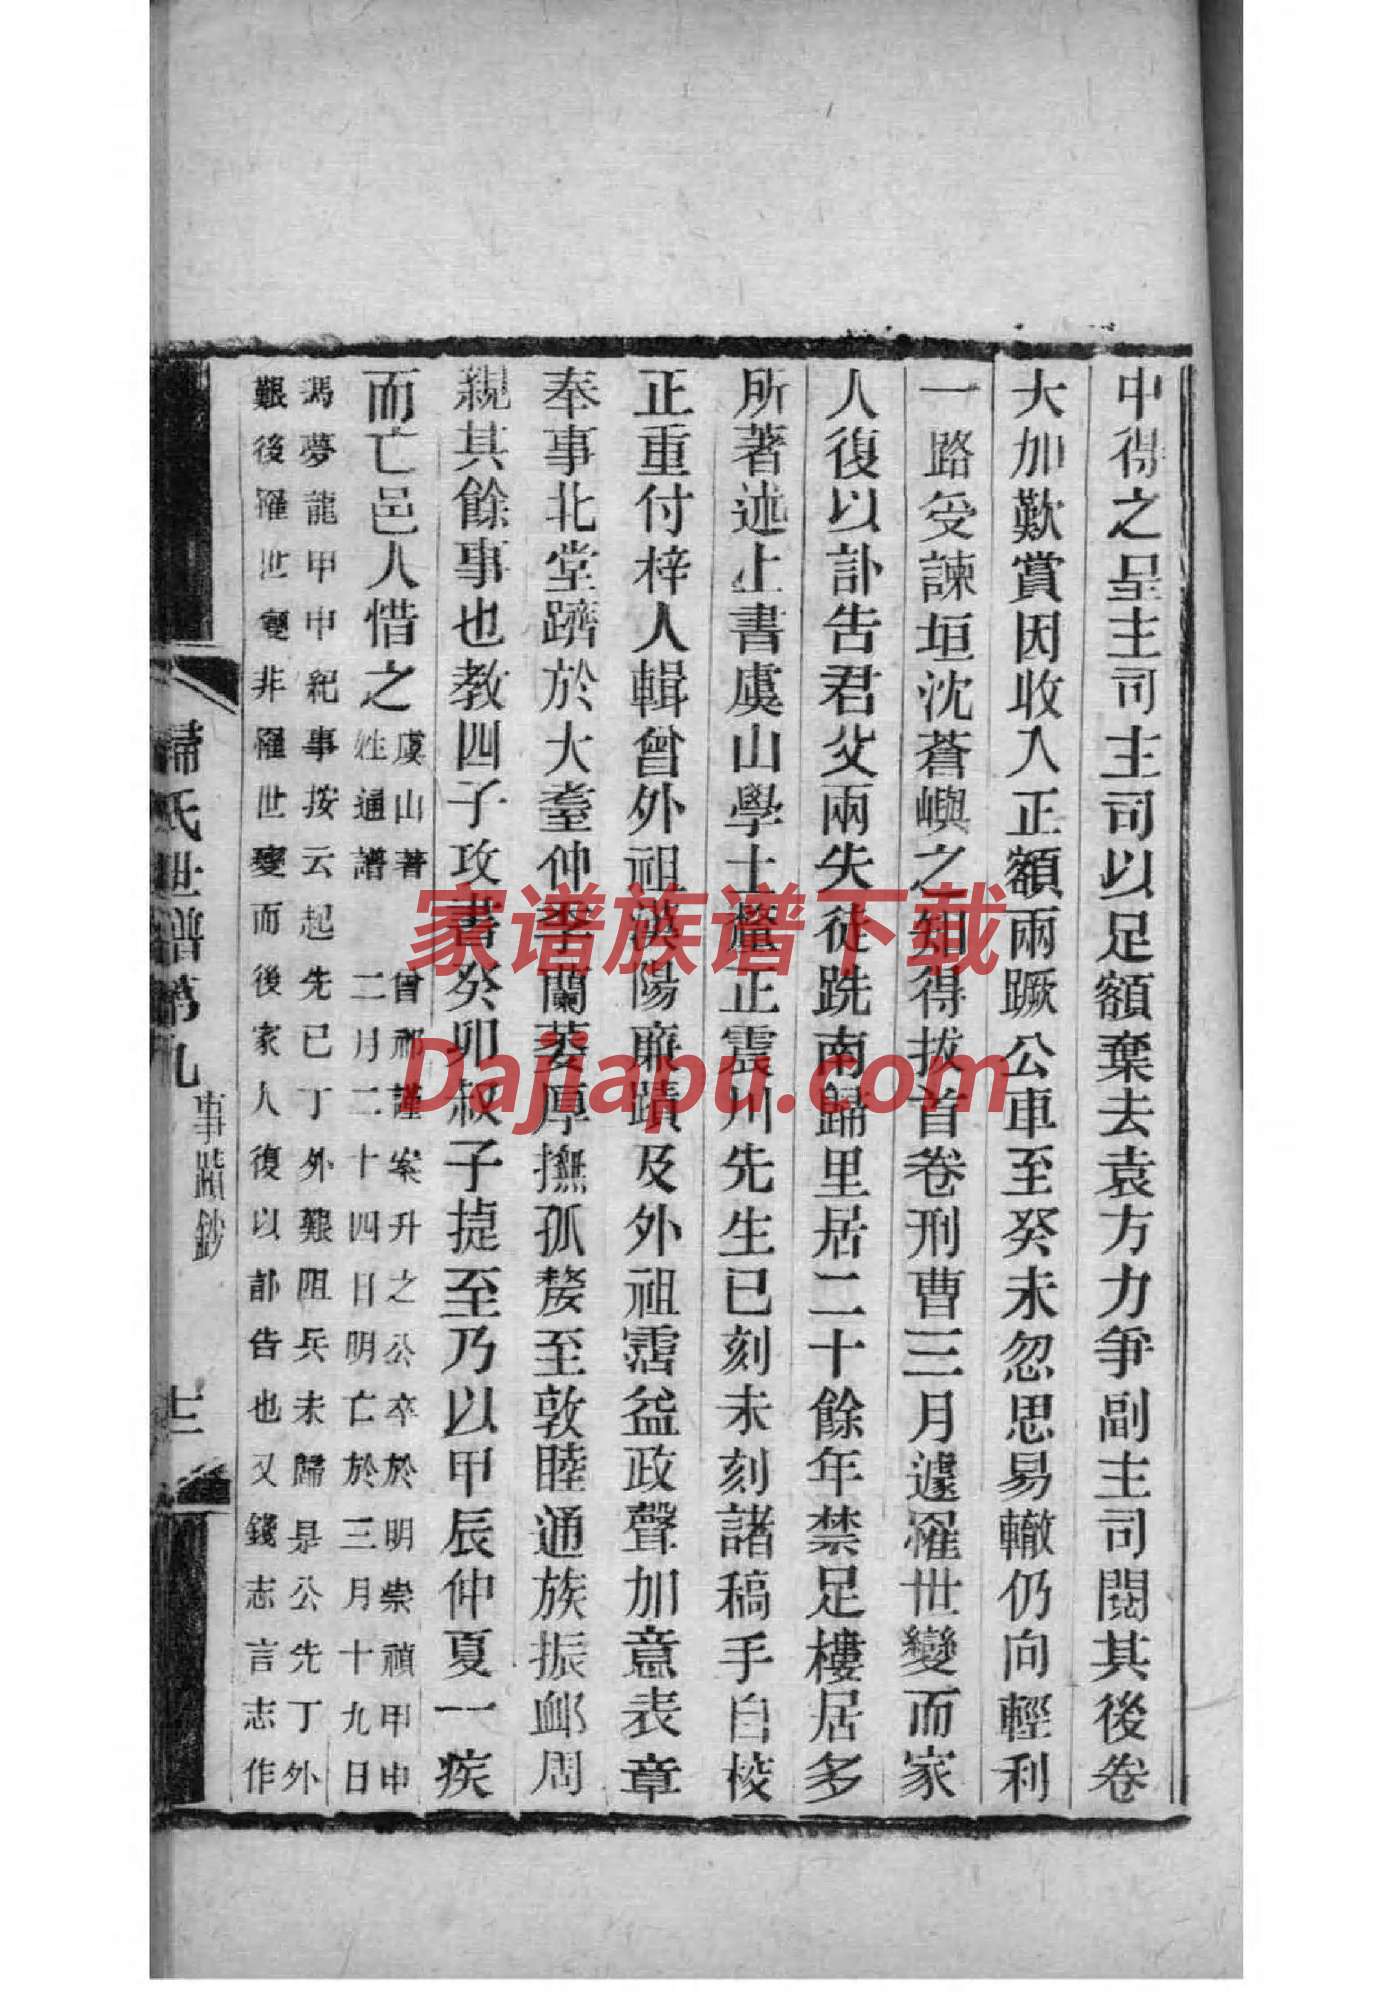 中得之呈主司主司以足額棄去袁方力爭副主司閱其後卷
大加歎賞因收入正額兩蹶公車至癸未忽思易轍仍向輕利
一路受諫垣沈蒼嶼之知得拔首卷刑曹三月遽罹世變而家
人復以訃告君父兩失徒跣南歸里居二十餘年禁足樓居多
所著述上書虞山學士釐正震川先生已刻未刻諸稿手自校
正重付梓人輯曾外祖漢陽廉蹟及外祖霑益政聲加意表章
奉事北堂躋於大耋仲季蘭萎厚撫孤嫠至敦睦通族振卹周
親其餘事也教四子攻書癸卯叔子捷至乃以甲辰仲夏一疾
而亡邑人惜之
虞山著
姓通譜
曾祁謹案升之公卒於明崇禎甲申
二月二十四日明亡於三月十九日
馮夢龍甲申紀事按云起先已丁外艱阻兵未歸是公先丁外
艱後罹世變非罹世變而後家人復以訃告也又錢志言志作
歸氏世譜第九
事蹟鈔
十二
家谱族谱下载
Dajiapu.com